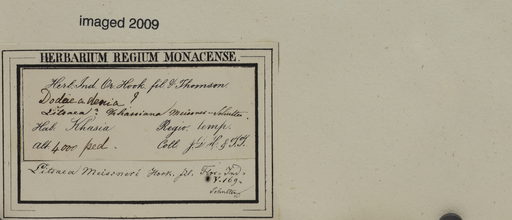 imaged 2009
HERBARIUM REGIUM MONACENSE.
Herb. Ind. Or. Hook. fil. & Thomson
Dodecadenia?
Litsaea? Khasiana Meissner
Hab. Khasia Regio temp.
alt. 4000 ped. Coll. J. D. H. & T. T.
Litsaea Meissneri Hook. fil. Flor. Ind.
V. 169.